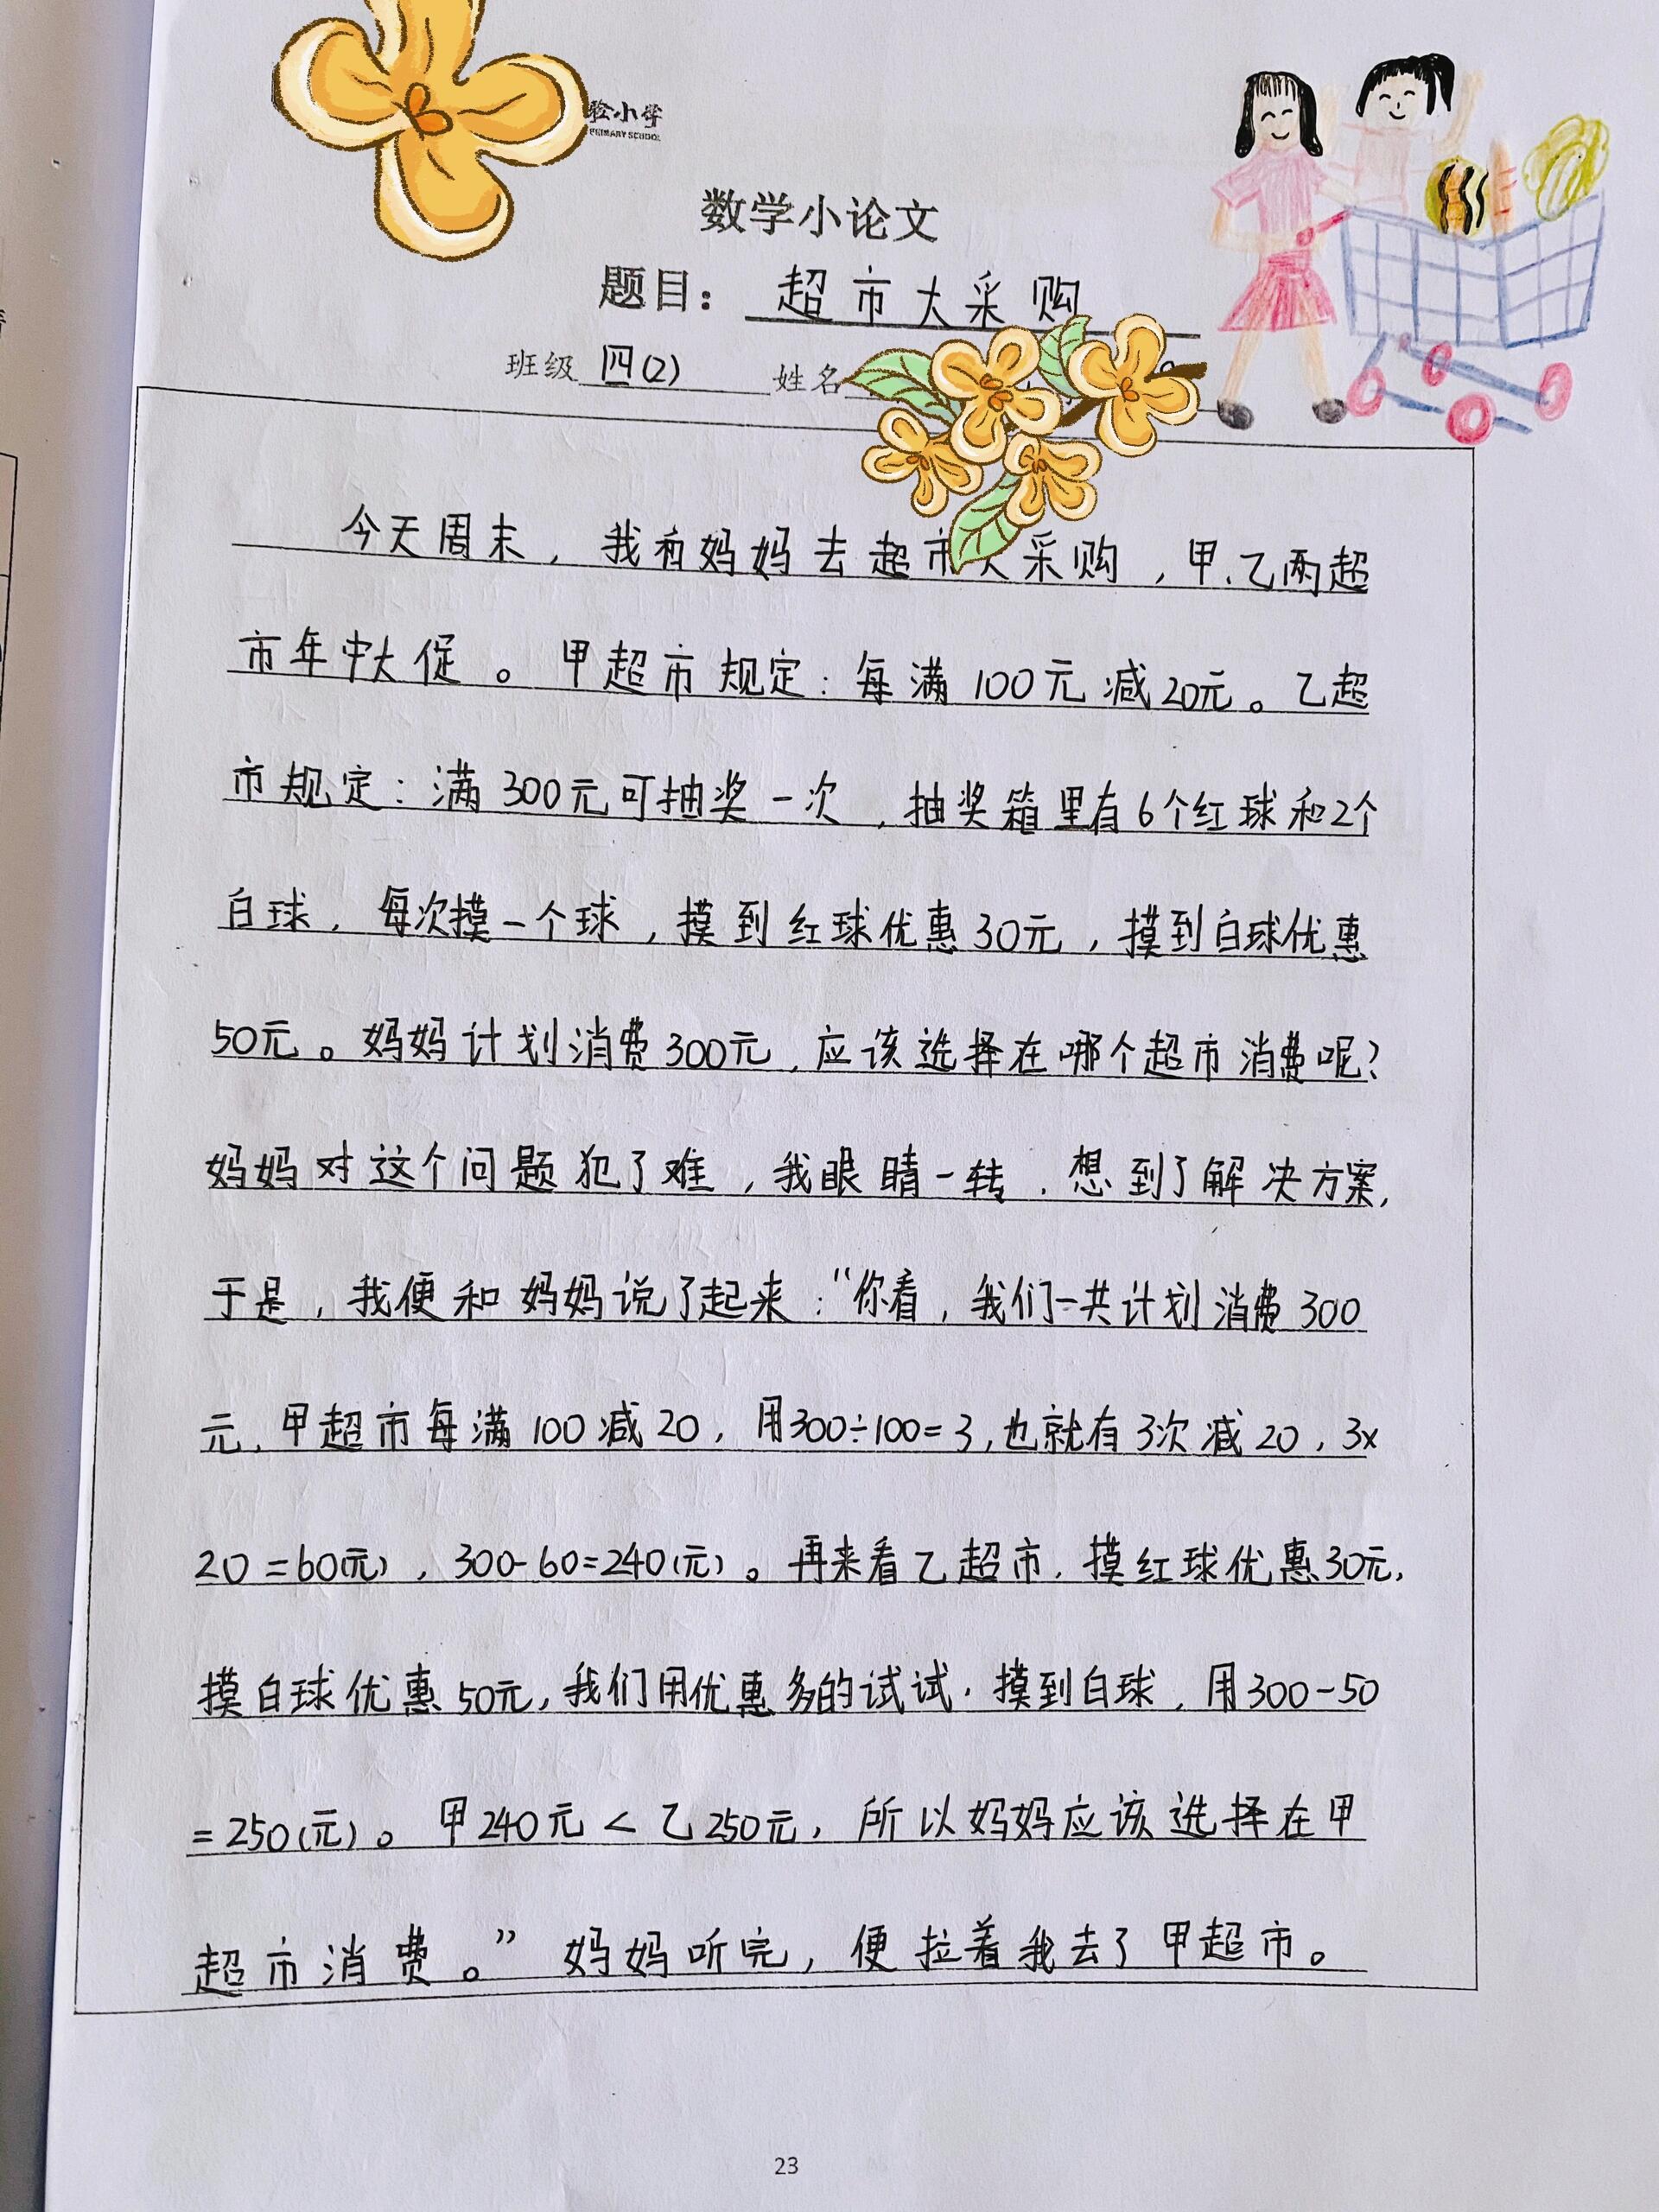 验小学
PRIMARY SCHOOL
数学小论文
题目：超市大采购
班级 四(2) 姓名
今天周末，我和妈妈去超市大采购，甲、乙两超
市年中大促。甲超市规定：每满100元减20元。乙超
市规定：满300元可抽奖一次，抽奖箱里有6个红球和2个
白球，每次摸一个球，摸到红球优惠30元，摸到白球优惠
50元。妈妈计划消费300元，应该选择在哪个超市消费呢？
妈妈对这个问题犯了难，我眼睛一转，想到了解决方案，
于是，我便和妈妈说了起来：“你看，我们一共计划消费300
元，甲超市每满100减20，用300÷100=3，也就有3次减20，3×
20=60(元)，300-60=240(元)。再来看乙超市，摸红球优惠30元，
摸白球优惠50元，我们用优惠多的试试，摸到白球，用300-50
=250(元)。甲240元<乙250元，所以妈妈应该选择在甲
超市消费。”妈妈听完，便拉着我去了甲超市。
23